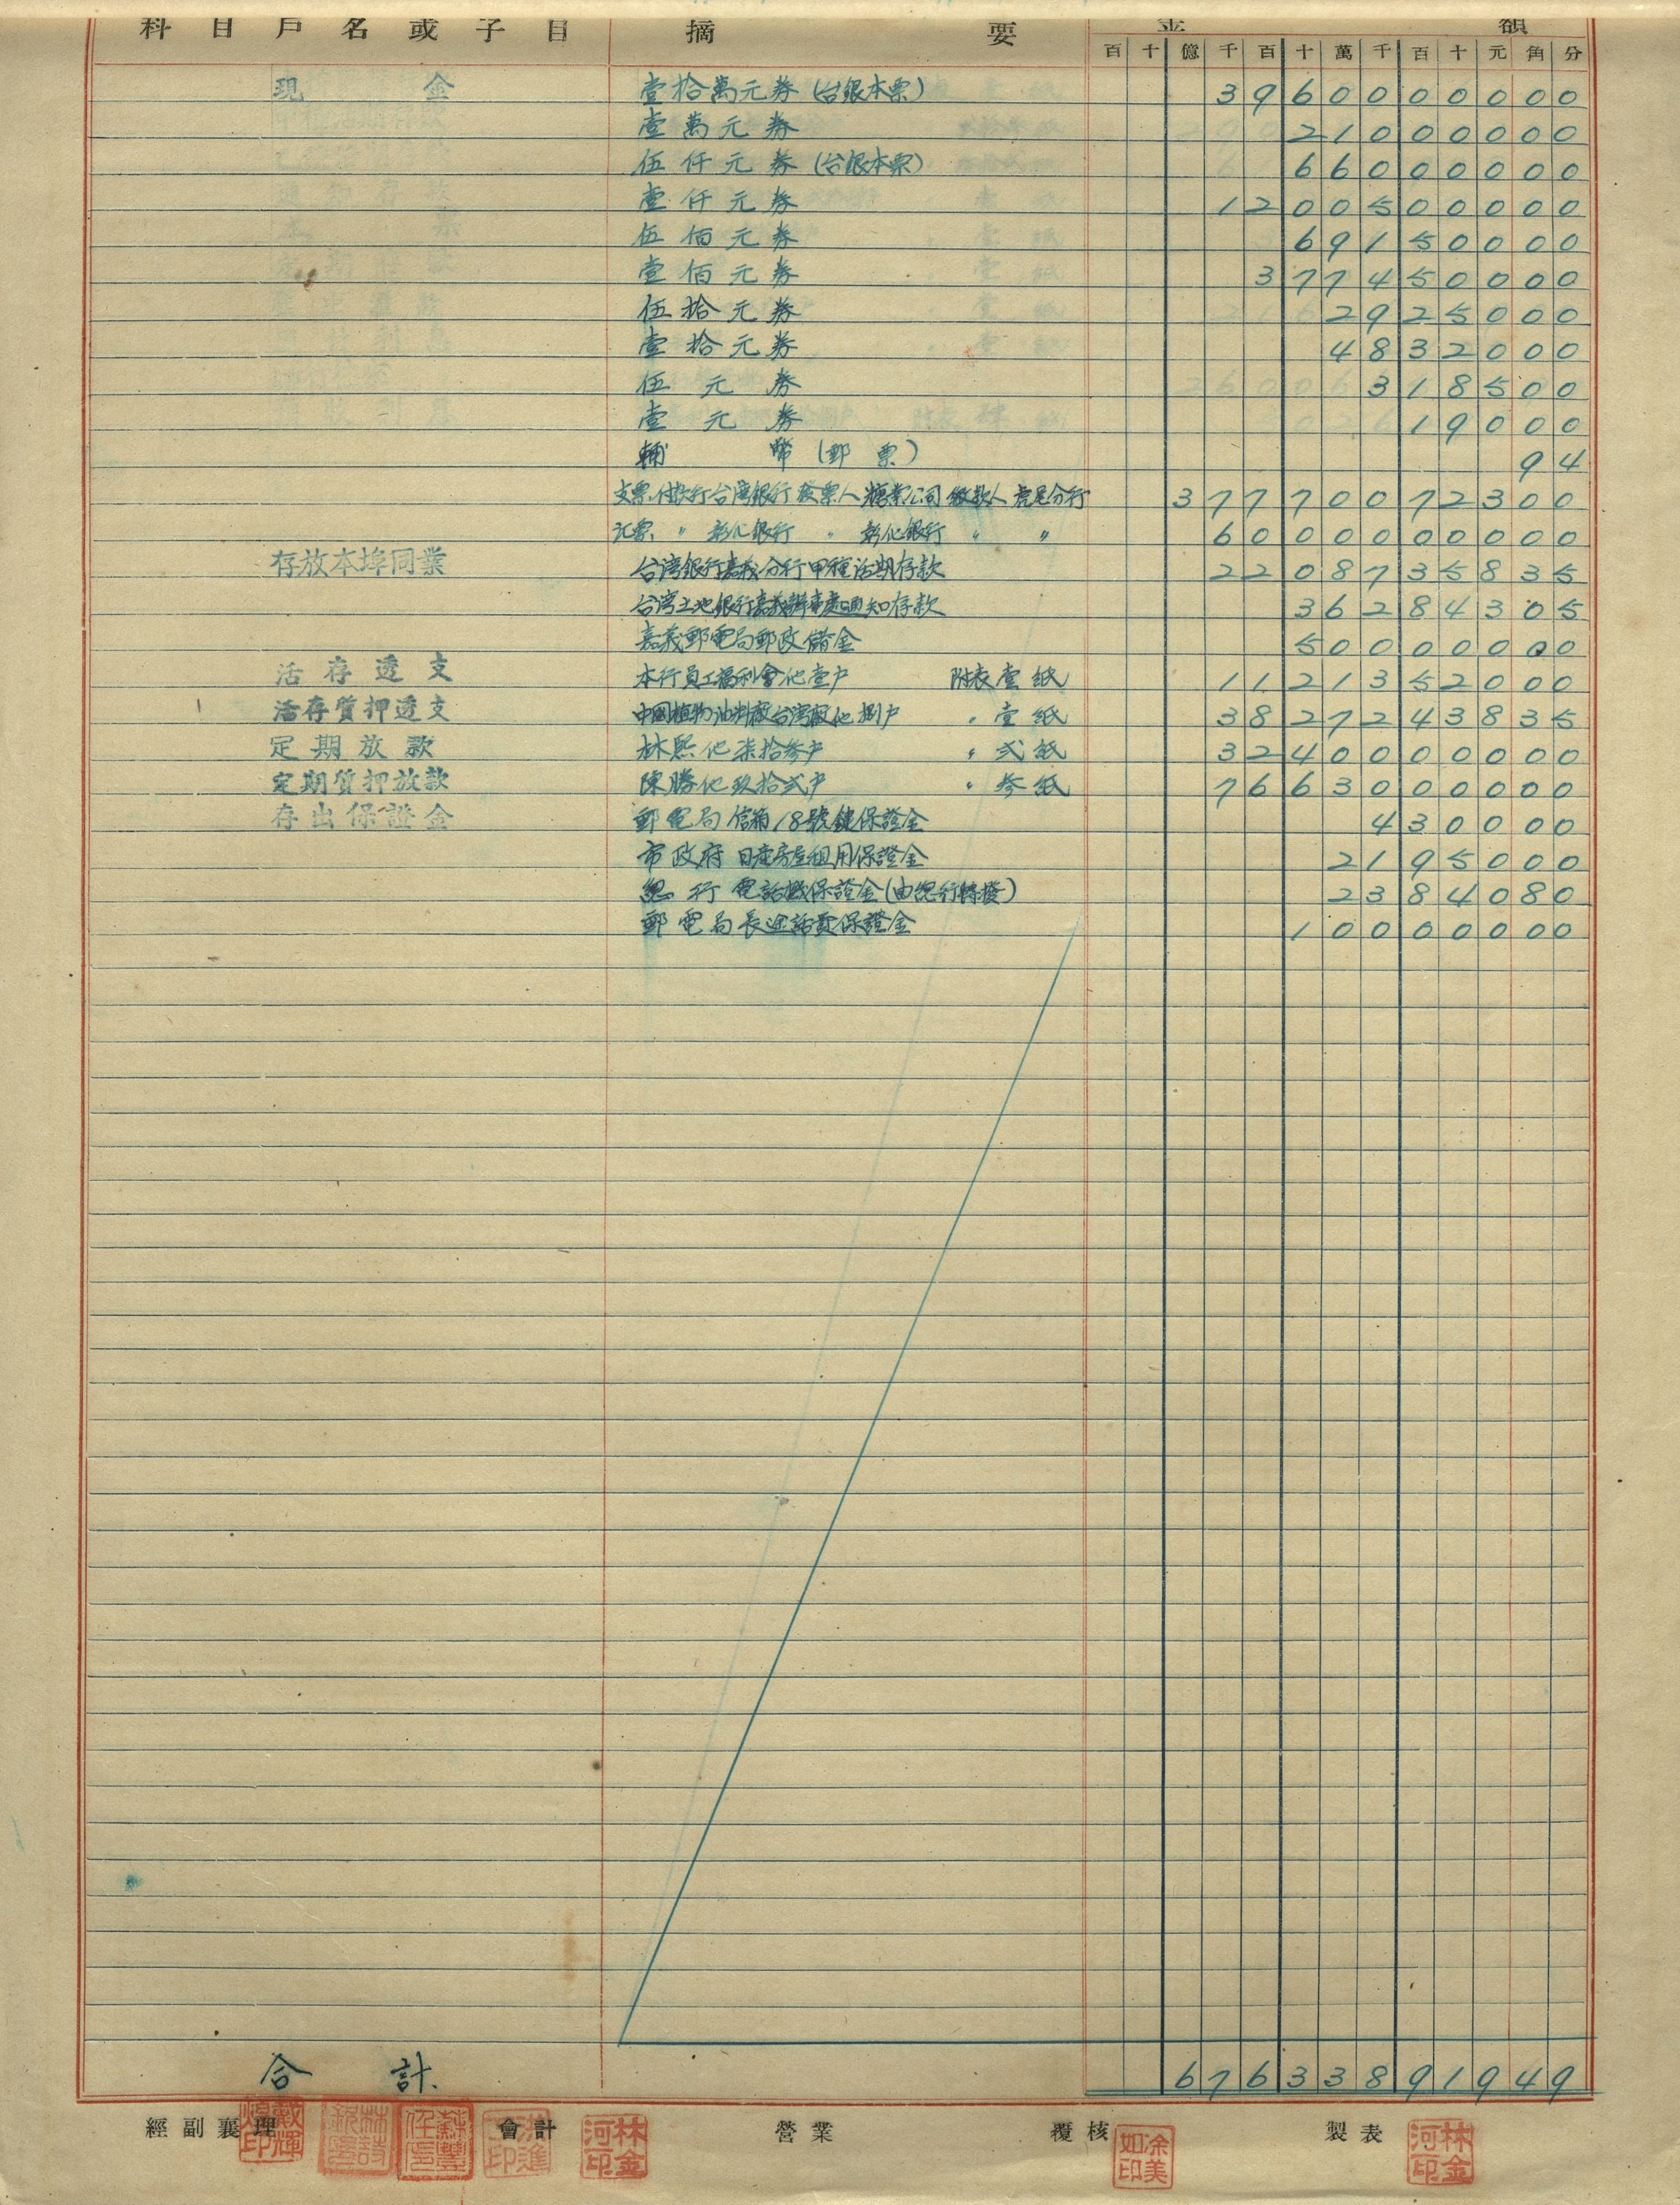 科目戶名或子目 摘要 金額
百 十 億 千 百 十 萬 千 百 十 元 角 分
現金 壹拾萬元券(台銀本票) 39600000000
壹萬元券 21000000
伍仟元券(台銀本票) 66000000
壹仟元券 1200500000
伍佰元券 69150000
壹佰元券 377450000
伍拾元券 2925000
壹拾元券 4832000
伍元券 318500
壹元券 19000
輔幣(郵票) 94
支票.付款行台灣銀行發票人糖業公司繳款人虎尾分行 37770072300
汇票. 〃 彰化銀行 〃 彰化銀行 〃 〃 6000000000
存放本埠同業 台灣銀行嘉義分行甲種活期存款 2208735835
台湾土地銀行嘉義辦事處通知存款 36284305
嘉義郵電局郵政儲金 50000000
活存透支 本行員工福利會他壹戶 附表壹紙 1121352000
活存質押透支 中國植物油料廠台灣廠他捌戶 〃 壹紙 3827243835
定期放款 林熙他柒拾參戶 〃 弍紙 3240000000
定期質押放款 陳勝他玖拾弍戶 〃 參紙 7663000000
存出保證金 郵電局信箱18號鍵保證金 430000
市政府日產房屋租用保證金 2195000
總行電話機保證金(由總行轉撥) 2384080
郵電局長途話費保證金 10000000
合計. 67633891949
經副襄理 會計 營業 覆核 製表
戴輝煌印 林金河印 涂美如印 林金河印